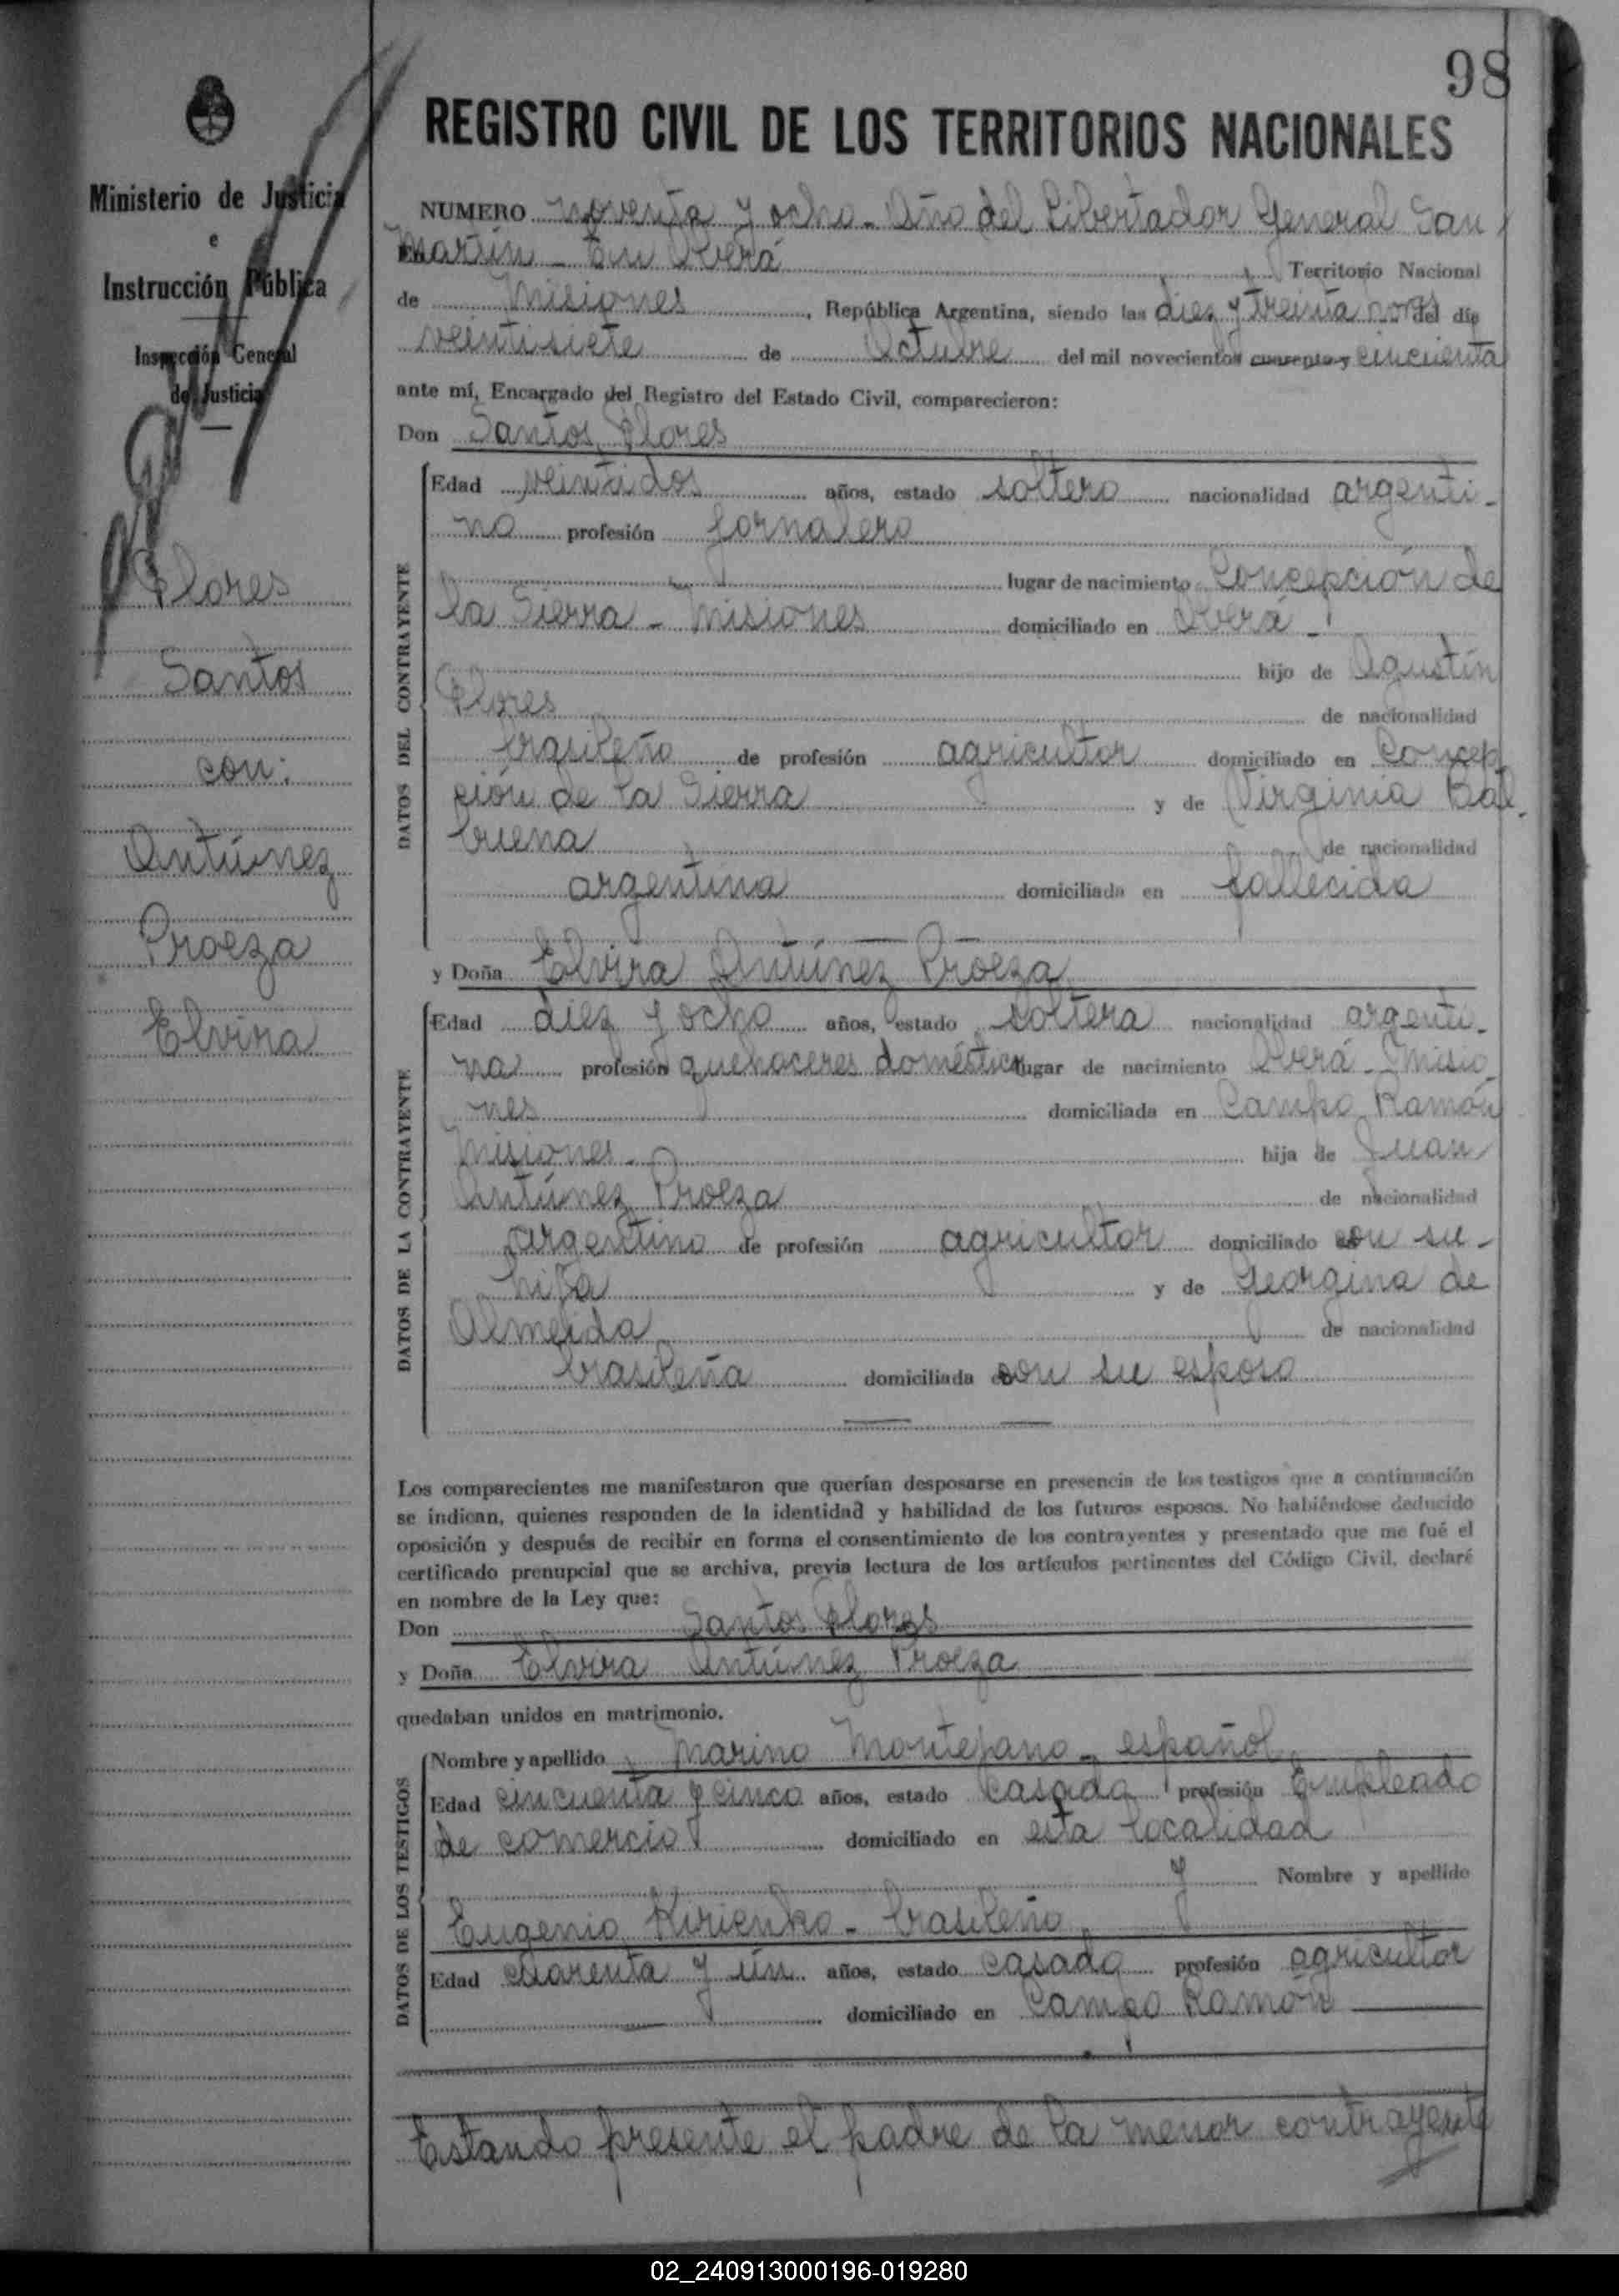 98
Ministerio de Justicia
e
Instrucción Pública
Inspección General
de Justicia
Flores
Santos
con:
Antúnez
Proeza
Elvira
REGISTRO CIVIL DE LOS TERRITORIOS NACIONALES
NUMERO noventa y ocho - Año del Libertador General San
Martín - En Oberá Territorio Nacional
de Misiones, República Argentina, siendo las diez y treinta horas del día
veintisiete de Octubre del mil novecientos cuarenta y cincuenta
ante mí, Encargado del Registro del Estado Civil, comparecieron:
Don Santos Flores
DATOS DEL CONTRAYENTE
Edad veintidos años, estado soltero nacionalidad argenti-
no profesión jornalero
lugar de nacimiento Concepción de
la Sierra - Misiones domiciliado en Oberá -
hijo de Agustín
Flores de nacionalidad
brasileño de profesión agricultor domiciliado en Concep
ción de la Sierra y de Virginia Bal
buena de nacionalidad
argentina domiciliada en fallecida
y Doña Elvira Antúnez Proeza
DATOS DE LA CONTRAYENTE
Edad diez y ocho años, estado soltera nacionalidad argenti-
na profesión quehaceres domésticos lugar de nacimiento Oberá - Misio
nes domiciliada en Campo Ramón
Misiones - hija de Juan
Antúnez Proeza de nacionalidad
argentino de profesión agricultor domiciliado con su -
hija y de Georgina de
Almeida de nacionalidad
brasileña domiciliada con su esposo
Los comparecientes me manifestaron que querían desposarse en presencia de los testigos que a continuación
se indican, quienes responden de la identidad y habilidad de los futuros esposos. No habiéndose deducido
oposición y después de recibir en forma el consentimiento de los contrayentes y presentado que me fué el
certificado prenupcial que se archiva, previa lectura de los artículos pertinentes del Código Civil, declaré
en nombre de la Ley que:
Don Santos Flores
y Doña Elvira Antúnez Proeza
quedaban unidos en matrimonio.
DATOS DE LOS TESTIGOS
Nombre y apellido Marino Montejano - español
Edad cincuenta y cinco años, estado casado profesión Empleado
de comercio domiciliado en esta localidad
y Nombre y apellido
Eugenio Kirienko - brasileño
Edad cuarenta y ún años, estado casado profesión agricultor
domiciliado en Campo Ramón
Estando presente el padre de la menor contrayente
02_240913000196-019280